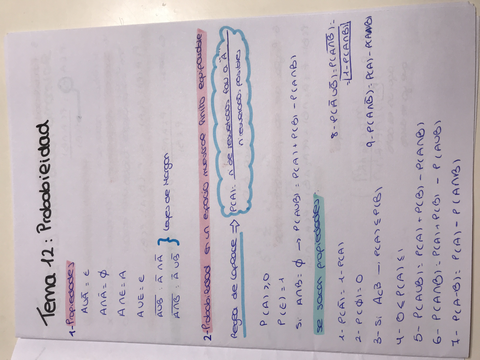 Tema 12: Probabilidad
1-Propiedades
A∪Ā = E
A∩Ā = ∅
A∩E = A
A∪E = E
A̅∪̅B̅ = Ā∩B̅
A̅∩̅B̅ = Ā∪B̅ } Leyes de Morgan
2-Probabilidad en un espacio muestral finito equiprobable
Regla de Laplace → P(A) = nº de resultados fav a A / nº resultados posibles
P(A) ≥ 0
P(E) = 1
Si A∩B = ∅ → P(A∪B) = P(A) + P(B) - P(A∩B)
Se sacan propiedades
1- P(Ā) = 1 - P(A)
2- P(∅) = 0
3- Si A⊂B → P(A) ≤ P(B)
4- 0 ≤ P(A) ≤ 1
5- P(A∪B) = P(A) + P(B) - P(A∩B)
6- P(A∩B) = P(A) + P(B) - P(A∪B)
7- P(A-B) = P(A) - P(A∩B)
8- P(Ā∪B̅) = P(A̅∩̅B̅)
= 1 - P(A∩B)
9- P(A∩B̅) = P(A) - P(A∩B)